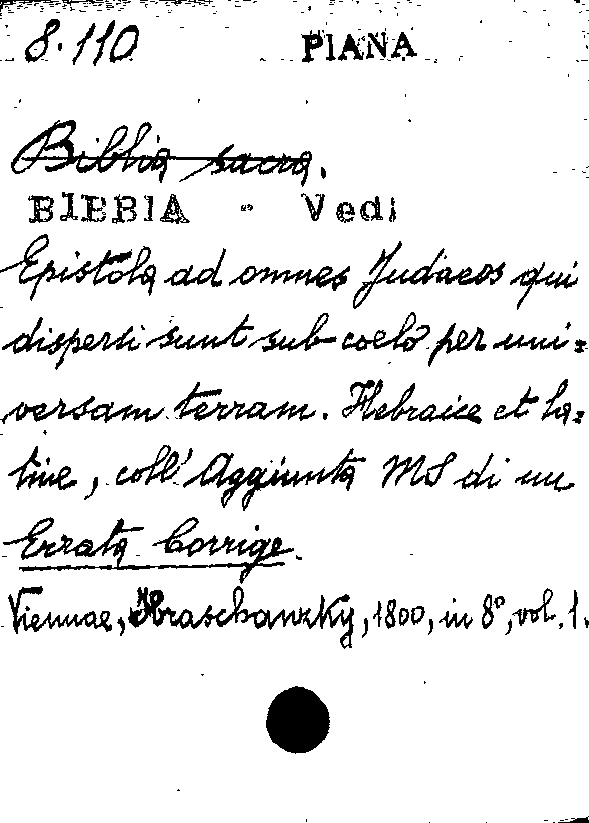 8.110 PIANA
Biblia sacra.
BIBBIA - Vedi
Epistola ad omnes Judaeos qui
dispersi sunt sub coelo per uni=
versam terram. Hebraice et la=
tine, coll' Aggiunta MS di un
Errata Corrige.
Viennae, Hraschanzky, 1800, in 8°, vol. 1.